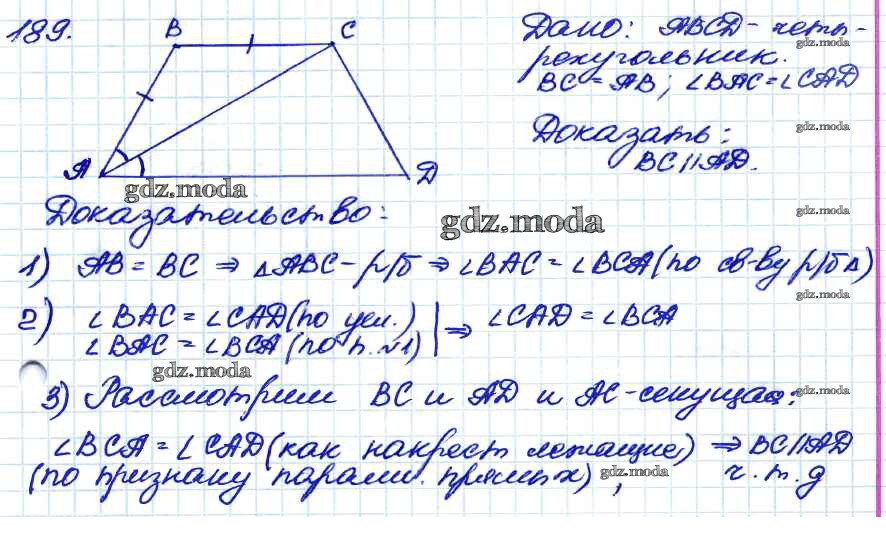 189.
B
C
A
D
Дано: ABCD - четы-
рехугольник.
BC = AB; ∠BAC = ∠CAD
Доказать:
BC || AD.
Доказательство:
1) AB = BC ⇒ ΔABC - р/б ⇒ ∠BAC = ∠BCA (по св-ву р/б Δ)
2) ∠BAC = ∠CAD (по усл.)
∠BAC = ∠BCA (по п. №1) | ⇒ ∠CAD = ∠BCA
3) Рассмотрим BC и AD и AC - секущая:
∠BCA = ∠CAD (как накрест лежащие) ⇒ BC || AD
(по признаку паралл. прямых), ч.т.д
gdz.moda
gdz.moda
gdz.moda
gdz.moda
gdz.moda
gdz.moda
gdz.moda
gdz.moda
gdz.moda
gdz.moda